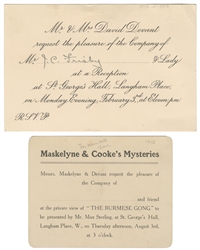 Mr & Mrs David Devant
request the pleasure of the Company of
Mr J.C.
& Lady
at a Reception
at St. George's Hall, Langham Place,
on Monday Evening, February 5, at Eleven p.m.
R.S.V.P.
Maskelyne & Cooke's Mysteries
Messrs. Maskelyne & Devant request the pleasure of
the Company of
and friend
at the private view of "THE BURMESE GONG" to
be presented by Mr. Max Sterling, at St. George's Hall,
Langham Place, W., on Thursday afternoon, August 3rd,
at 3 o'clock.